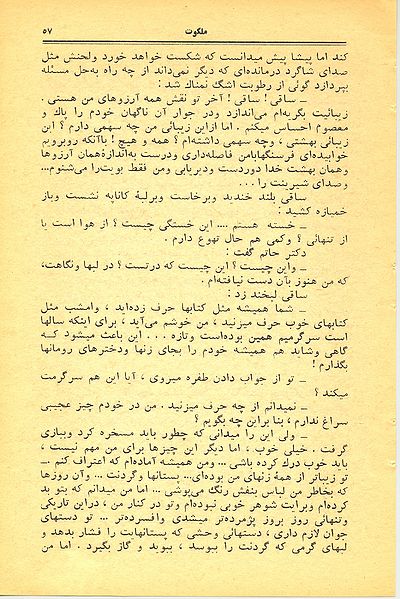 ملکوت
۵۷
کند اما پیشا پیش میدانست که شکست خواهد خورد ولحنش مثل
صدای شاگرد درمانده‌ای که دیگر نمی‌داند از چه راه به‌حل مسئله
بپردازد گوئی از رطوبت اشک نمناک شد :
ـ ساقی ! ساقی ! آخر تو نقش همه آرزوهای من هستی .
زیبائیت بگریه‌ام می‌اندازد ودر جوار آن ناگهان خودم را پاك و
معصوم احساس میکنم . اما ازاین زیبائی من چه سهمی دارم ؟ این
زیبائی بهشتی ، وچه سهمی داشته‌ام ؟ همه و هیچ ! باآنکه روبرویم
خوابیده‌ای فرسنگهابامن فاصله‌داری ودرست به‌اندازهٔ‌همان آرزوها
وهمان بهشت خدا دوردست ودیریابی ومن فقط بویت‌را می‌شنوم...
وصدای شیرینت را . . .
ساقی بلند خندید وبرخاست وبرلبهٔ کاناپه نشست وباز
خمیازه کشید :
ـ خسته هستم .... این خستگی چیست ؟ از هوا است یا
از تنهائی ؟ وکمی هم حال تهوع دارم .
دکتر حاتم گفت :
ـ واین چیست ؟ این چیست که درتست ؟ در لبها ونگاهت،
که من هنوز بان دست نیافته‌ام .
ساقی لبخند زد :
ـ شما همیشه مثل کتابها حرف زده‌اید ، وامشب مثل
کتابهای خوب حرف میزنید ، من خوشم می‌آید ، برای اینکه سالها
است سرگرمیم همین بوده‌است وتازه . . . این باعث میشود کـه
گاهی وشاید هم همیشه خودم را بجای زنها ودخترهای رومانها
بگذارم !
ـ تو از جواب دادن طفره میروی ، آیا این هم سرگرمت
میکند ؟
ـ نمیدانم از چه حرف میزنید . من در خودم چیز عجیبی
سراغ ندارم ، بنا براین چه بگویم ؟
ـ ولی این را میدانی که چطور باید مسخره کرد وببازی
گرفت . خیلی خوب ، اما دیگر این چیزها برای من مهم نیست ،
باید خوب درك کرده باشی ... ومن همیشه آماده‌ام که اعتراف کنم ...
تو زیباتر از همهٔ زنهای من بوده‌ای... پستانها وگردنت ... وآن روزها
که بخاطر من لباس بنفش رنگ می‌پوشی ... اما من میدانم که بتو بد
کرده‌ام وبرایت شوهر خوبی نبوده‌ام وتو در کنار من ، دراین تاریکی
وتنهائی روز بروز پژمرده‌تر میشدی وافسرده‌تر ... تو دستهای
جوان لازم داری ، دستهائی وحشی که پستانهایت را فشار بدهد و
لبهای گرمی که گردنت را ببوسد ، ببوید و گاز بگیرد . اما من